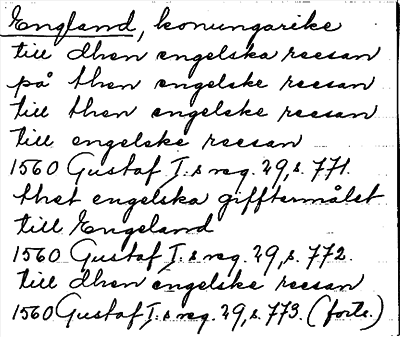 England, konungarike
till dhen engelska reesan
på then engelske reesan
till then engelske reesan
till engelske reesan
1560 Gustaf I:s reg. 29, s. 771.
thet engelska gifftermålet
till Engeland
1560 Gustaf I:s reg. 29, s. 772.
till dhen engelske reesan
1560 Gustaf I:s reg. 29, s. 773. (forts.)